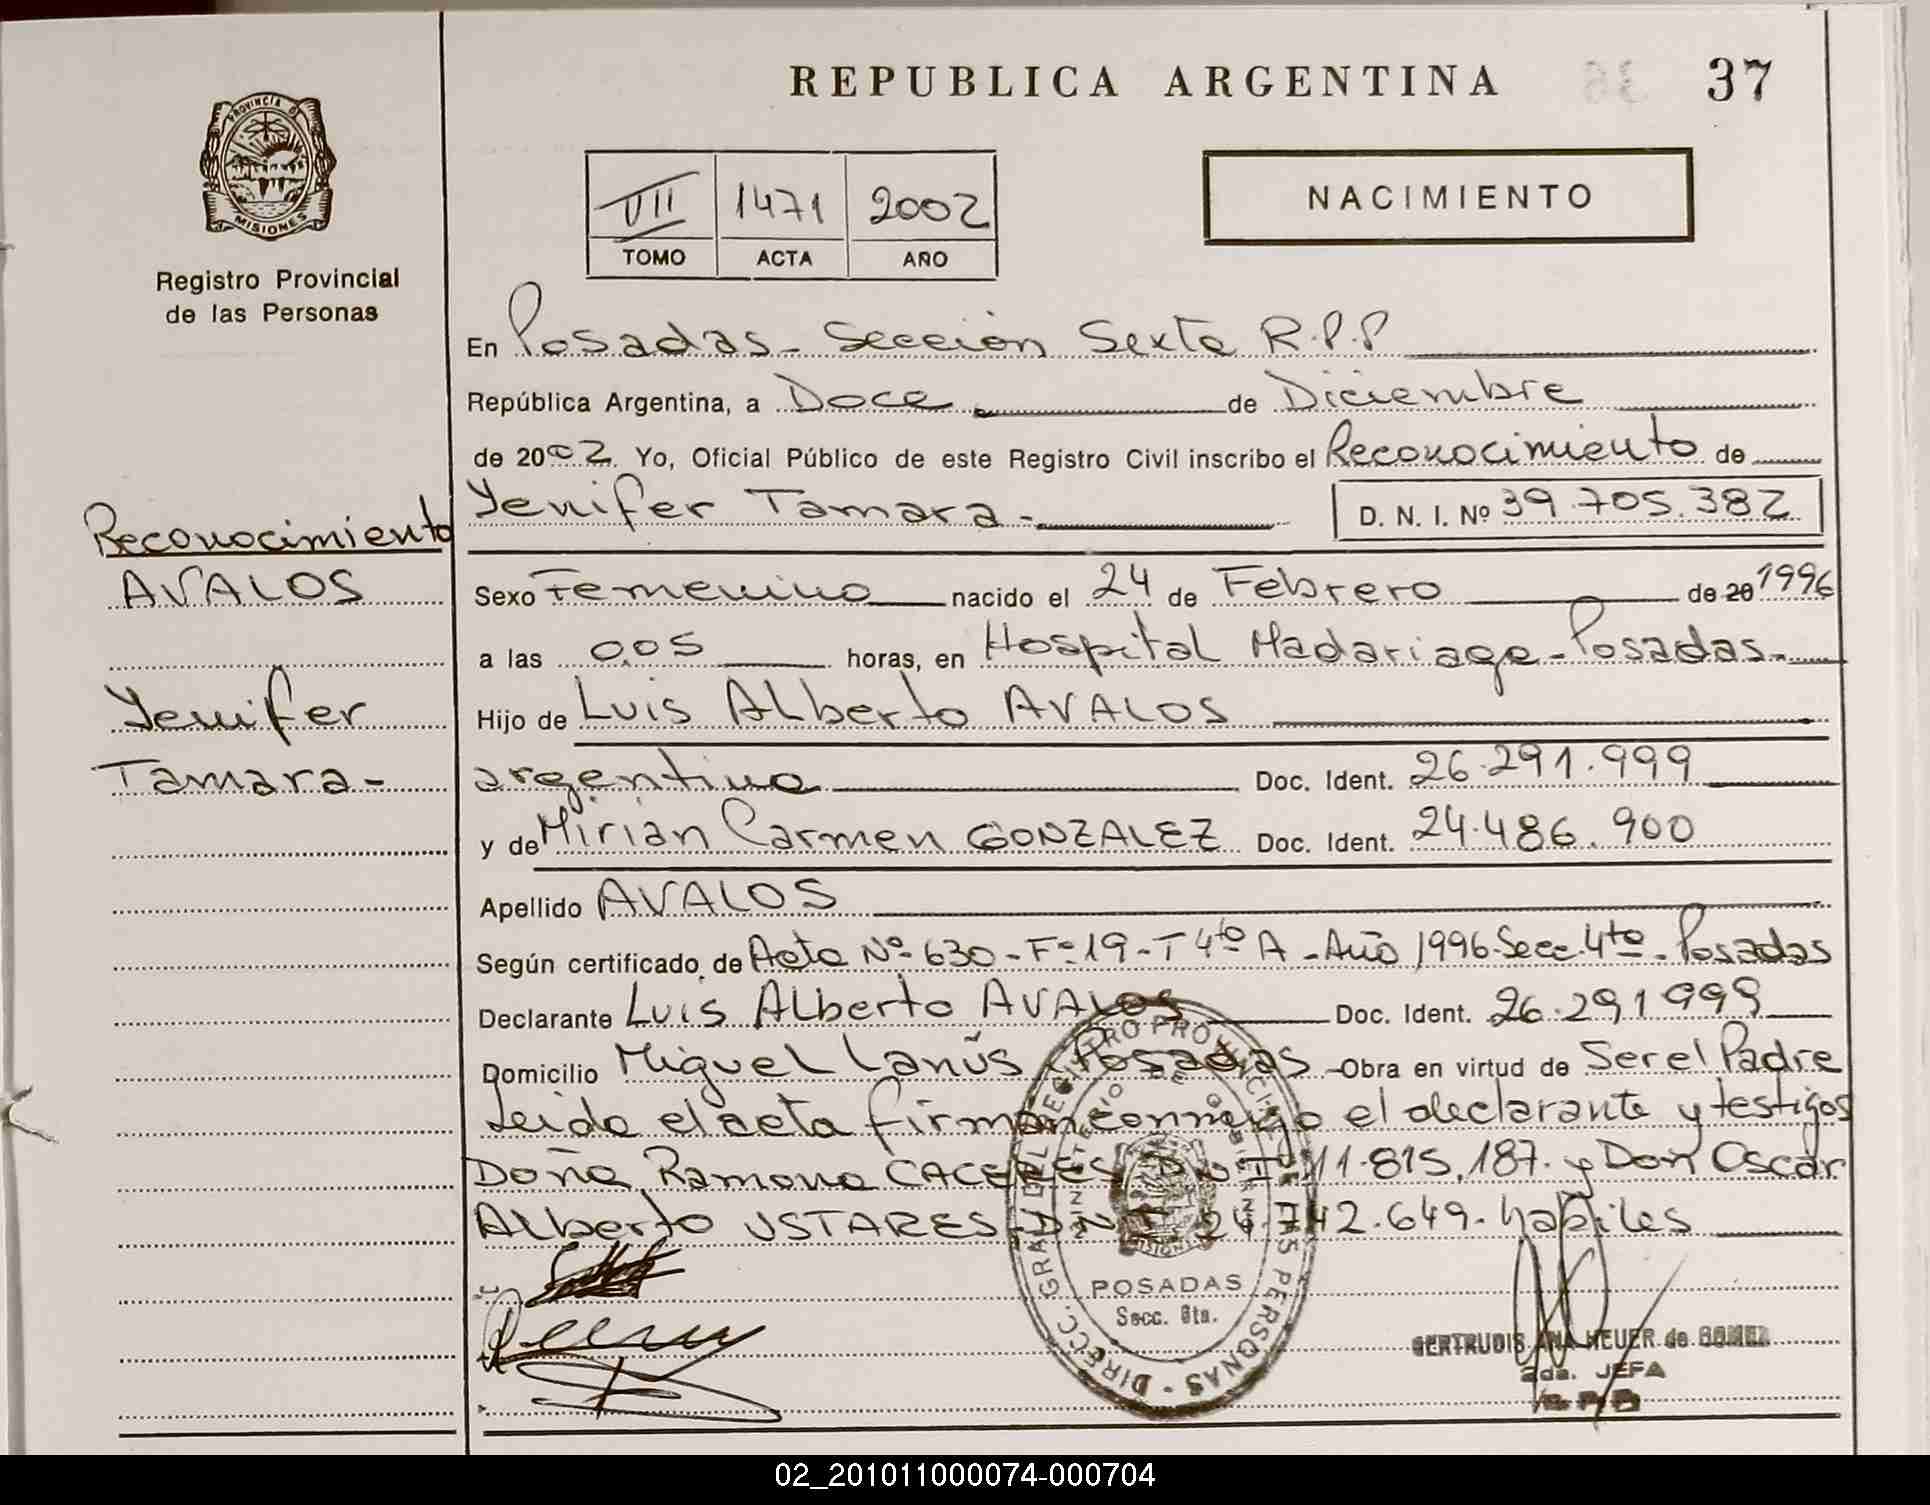 REPUBLICA ARGENTINA
37
PROVINCIA DE
MISIONES
Registro Provincial
de las Personas
VII 1471 2002
TOMO ACTA AÑO
NACIMIENTO
En Posadas - Sección Sexta R.P.P
República Argentina, a Doce de Diciembre
de 2002 Yo, Oficial Público de este Registro Civil inscribo el Reconocimiento de
Yenifer Tamara - D. N. I. Nº 39.705.382
Reconocimiento
AVALOS
Yenifer
Tamara -
Sexo Femenino nacido el 24 de Febrero de 20 1996
a las 0,05 horas, en Hospital Madariaga - Posadas -
Hijo de Luis Alberto AVALOS
argentino Doc. Ident. 26.291.999
y de Mirian Carmen GONZALEZ Doc. Ident. 24.486.900
Apellido AVALOS
Según certificado de Acta Nº 630 - Fº 19 - T 4to A - Año 1996 - Secc. 4to - Posadas
Declarante Luis Alberto AVALOS Doc. Ident. 26.291999
Domicilio Miguel Lanús Posadas - Obra en virtud de Ser el Padre
Leida el acta firman conmigo el declarante y testigos
Doña Ramona CACERES D.N.I. 11.815.187. y Don Oscar
Alberto USTARES - DNI 24.742.649 - habiles
DIRECC. GRAL DEL REGISTRO PROVINCIAL DE LAS PERSONAS
MINISTERIO DE GOBIERNO
MISIONES
POSADAS
Secc. 6ta.
GERTRUDIS ANA HEUER de GOMEZ
2da. JEFA
02_201011000074-000704